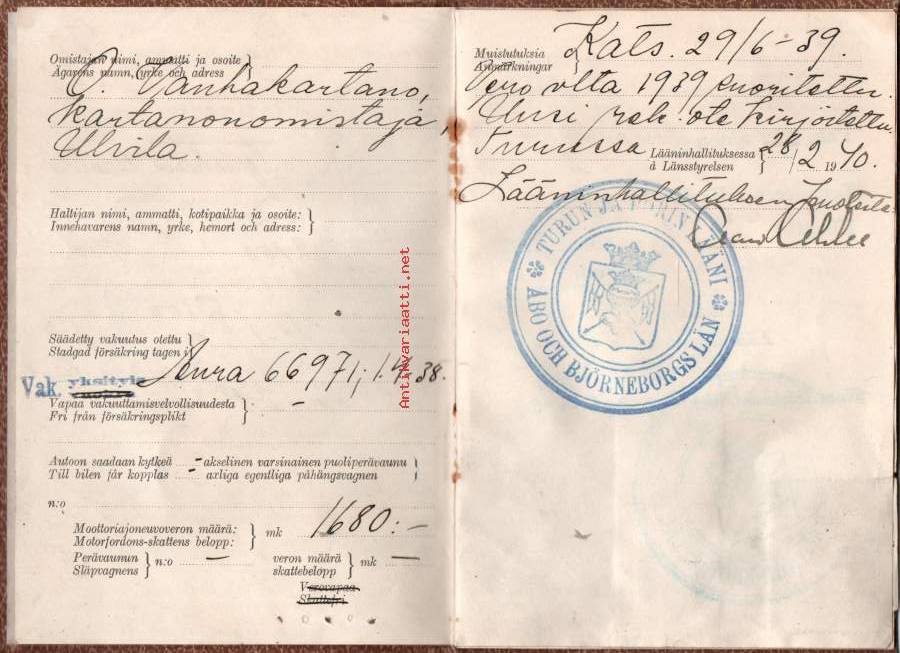 Omistajan nimi, ammatti ja osoite
Ägarens namn, yrke och adress
O. Vanhakartano,
kartanonomistaja,
Ulvila.
Haltijan nimi, ammatti, kotipaikka ja osoite:
Innehavarens namn, yrke, hemort och adress:
Säädetty vakuutus otettu
Stadgad försäkring tagen i
Vak. yksityis
Aura 66971; 1.4.38.
Vapaa vakuuttamisvelvollisuudesta
Fri från försäkringsplikt
Autoon saadaan kytkeä - akselinen varsinainen puoliperävaunu
Till bilen får kopplas - axliga egentliga påhängsvagnen
n:o
Moottoriajoneuvoveron määrä:
Motorfordons-skattens belopp:
mk 1680:-
Perävaunun
Släpvagnens
n:o —
veron määrä
skattebelopp
mk —
Verovapaa
Skattefri
Muistutuksia
Anmärkningar
Kats. 29/6-39.
Vero vlta 1939 suoritettu.
Uusi rek. ote kirjoitettu
Turussa Lääninhallituksessa
å Länsstyrelsen
28/2 1940.
Lääninhallituksen
TURUN JA PORIN LÄÄNI
ÅBO OCH BJÖRNEBORGS LÄN
Antikvariaatti.net